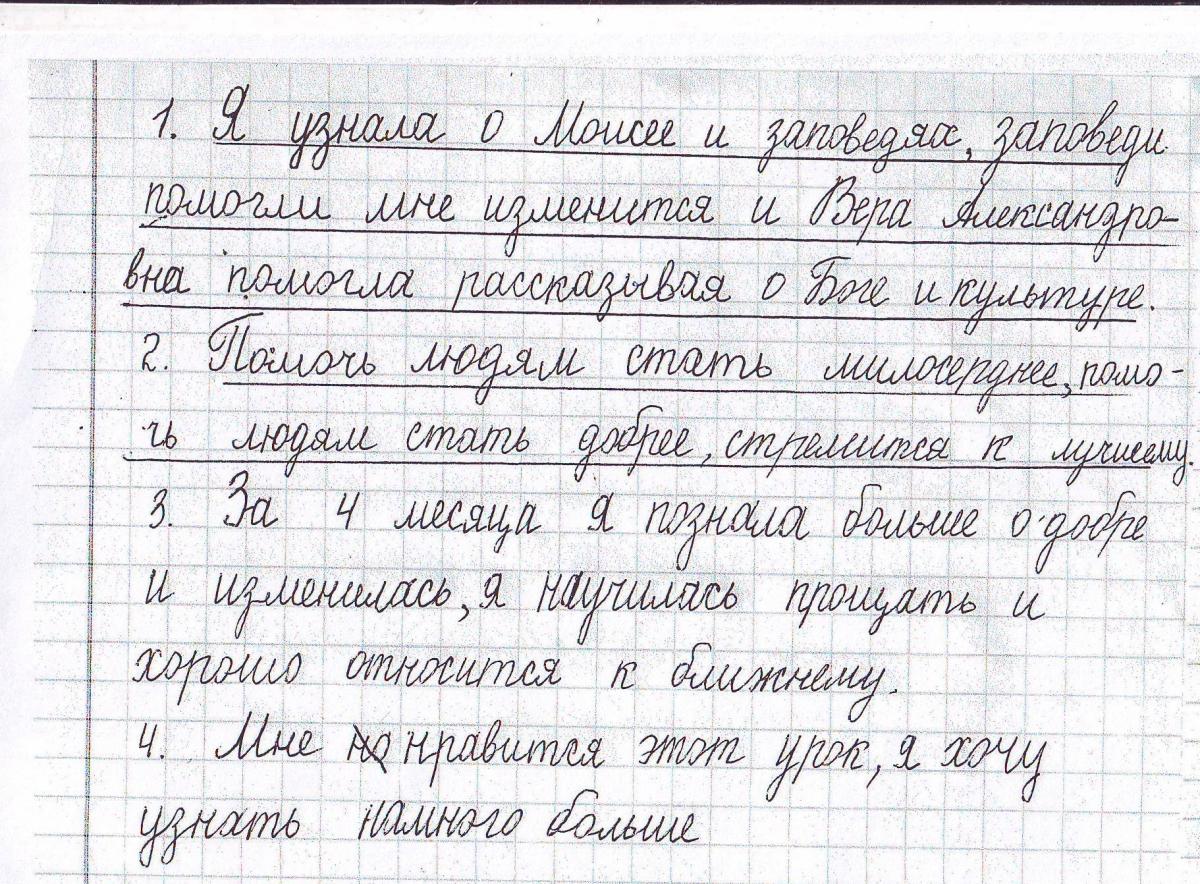 1. Я узнала о Моисее и заповедях, заповеди
помогли мне изменится и Вера Александро-
вна помогла рассказывая о Боге и культуре.
2. Помочь людям стать милосерднее, помо-
чь людям стать добрее, стремится к лучшему.
3. За 4 месяца я познала больше о добре
и изменилась, я научилась прощать и
хорошо относится к ближнему.
4. Мне нравится этот урок, я хочу
узнать намного больше